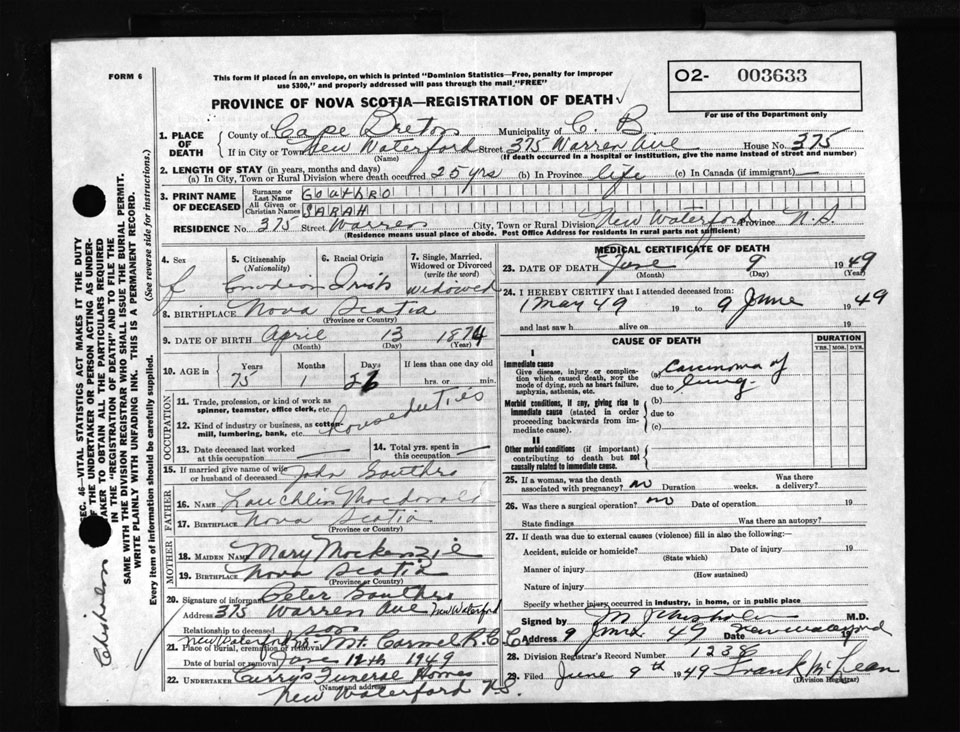 FORM 6
This form if placed in an envelope, on which is printed "Dominion Statistics—Free, penalty for improper
use $300," and properly addressed will pass through the mail "FREE"
O2- 003633
For use of the Department only
PROVINCE OF NOVA SCOTIA—REGISTRATION OF DEATH
1. PLACE OF DEATH
County of Cape Breton Municipality of C. B
If in City or Town New Waterford Street 375 Warren Ave House No. 375
(Name) (If death occurred in a hospital or institution, give the name instead of street and number)
2. LENGTH OF STAY (in years, months and days)
(a) In City, Town or Rural Division where death occurred 25 yrs (b) In Province life (c) In Canada (if immigrant) —
3. PRINT NAME OF DECEASED
Surname or Last Name GOUTHRO
All Given or Christian Names SARAH
RESIDENCE No. 375 Street Warren City, Town or Rural Division New Waterford Province N.S.
(Residence means usual place of abode. Post Office Address for residents in rural parts not sufficient)
4. Sex f
5. Citizenship (Nationality) Canadian
6. Racial Origin Irish
7. Single, Married, Widowed or Divorced (write the word) widowed
8. BIRTHPLACE Nova Scotia
(Province or Country)
9. DATE OF BIRTH April 13 1874
(Month) (Day) (Year)
10. AGE in Years Months Days If less than one day old
75 1 26 hrs. or min.
OCCUPATION
11. Trade, profession, or kind of work as
spinner, teamster, office clerk, etc.
12. Kind of industry or business, as cotton-
mill, lumbering, bank, etc. Houseduties
13. Date deceased last worked at this occupation
14. Total yrs. spent in this occupation
15. If married give name of wife or husband of deceased John Gouthro
FATHER
16. NAME Lauchlin Macdonald
17. BIRTHPLACE Nova Scotia
(Province or Country)
MOTHER
18. MAIDEN NAME Mary Mackenzie
19. BIRTHPLACE Nova Scotia
(Province or Country)
20. Signature of informant Peter Gouthro
Address 375 Warren Ave New Waterford
Relationship to deceased son
21. Place of burial, cremation or removal New Waterford Mt. Carmel R.C.C.
Date of burial or removal June 12th 1949
22. UNDERTAKER Curry's Funeral Homes
(Name and address)
New Waterford N.S.
MEDICAL CERTIFICATE OF DEATH
23. DATE OF DEATH June 9 1949
(Month) (Day) (Year)
24. I HEREBY CERTIFY that I attended deceased from:
1 May 49 19 to 9 June 1949
and last saw h alive on 19
CAUSE OF DEATH
DURATION
YRS. MOS. DYS.
I
Immediate cause
Give disease, injury or complica-
tion which caused death, NOT the
mode of dying, such as heart failure,
asphyxia, asthenia, etc.
(a) Carcinoma of
due to lung
Morbid conditions, if any, giving rise to
immediate cause (stated in order
proceeding backwards from im-
mediate cause).
(b)
due to
(c)
II
Other morbid conditions (if important)
contributing to death but not
causally related to immediate cause.
25. If a woman, was the death
associated with pregnancy? no Duration weeks. Was there a delivery?
26. Was there a surgical operation? no Date of operation 19
State findings Was there an autopsy?
27. If death was due to external causes (violence) fill in also the following:
Accident, suicide or homicide? Date of injury 19
(State which)
Manner of injury
(How sustained)
Nature of injury
Specify whether injury occurred in industry, in home, or in public place
Signed by M.D.
Address 9 June 49 Date New Waterford 19
28. Division Registrar's Record Number 1238
29. Filed June 9th 1949 Frank McLean
(Division Registrar)
SEC. 46—VITAL STATISTICS ACT MAKES IT THE DUTY
OF THE UNDERTAKER OR PERSON ACTING AS UNDER-
TAKER TO OBTAIN ALL THE PARTICULARS REQUIRED
IN THE "REGISTRATION OF DEATH" AND TO FILE THE
SAME WITH THE DIVISION REGISTRAR WHO SHALL ISSUE THE BURIAL PERMIT.
WRITE PLAINLY WITH UNFADING INK. THIS IS A PERMANENT RECORD.
Every item of information should be carefully supplied. (See reverse side for instructions.)
Chisholm